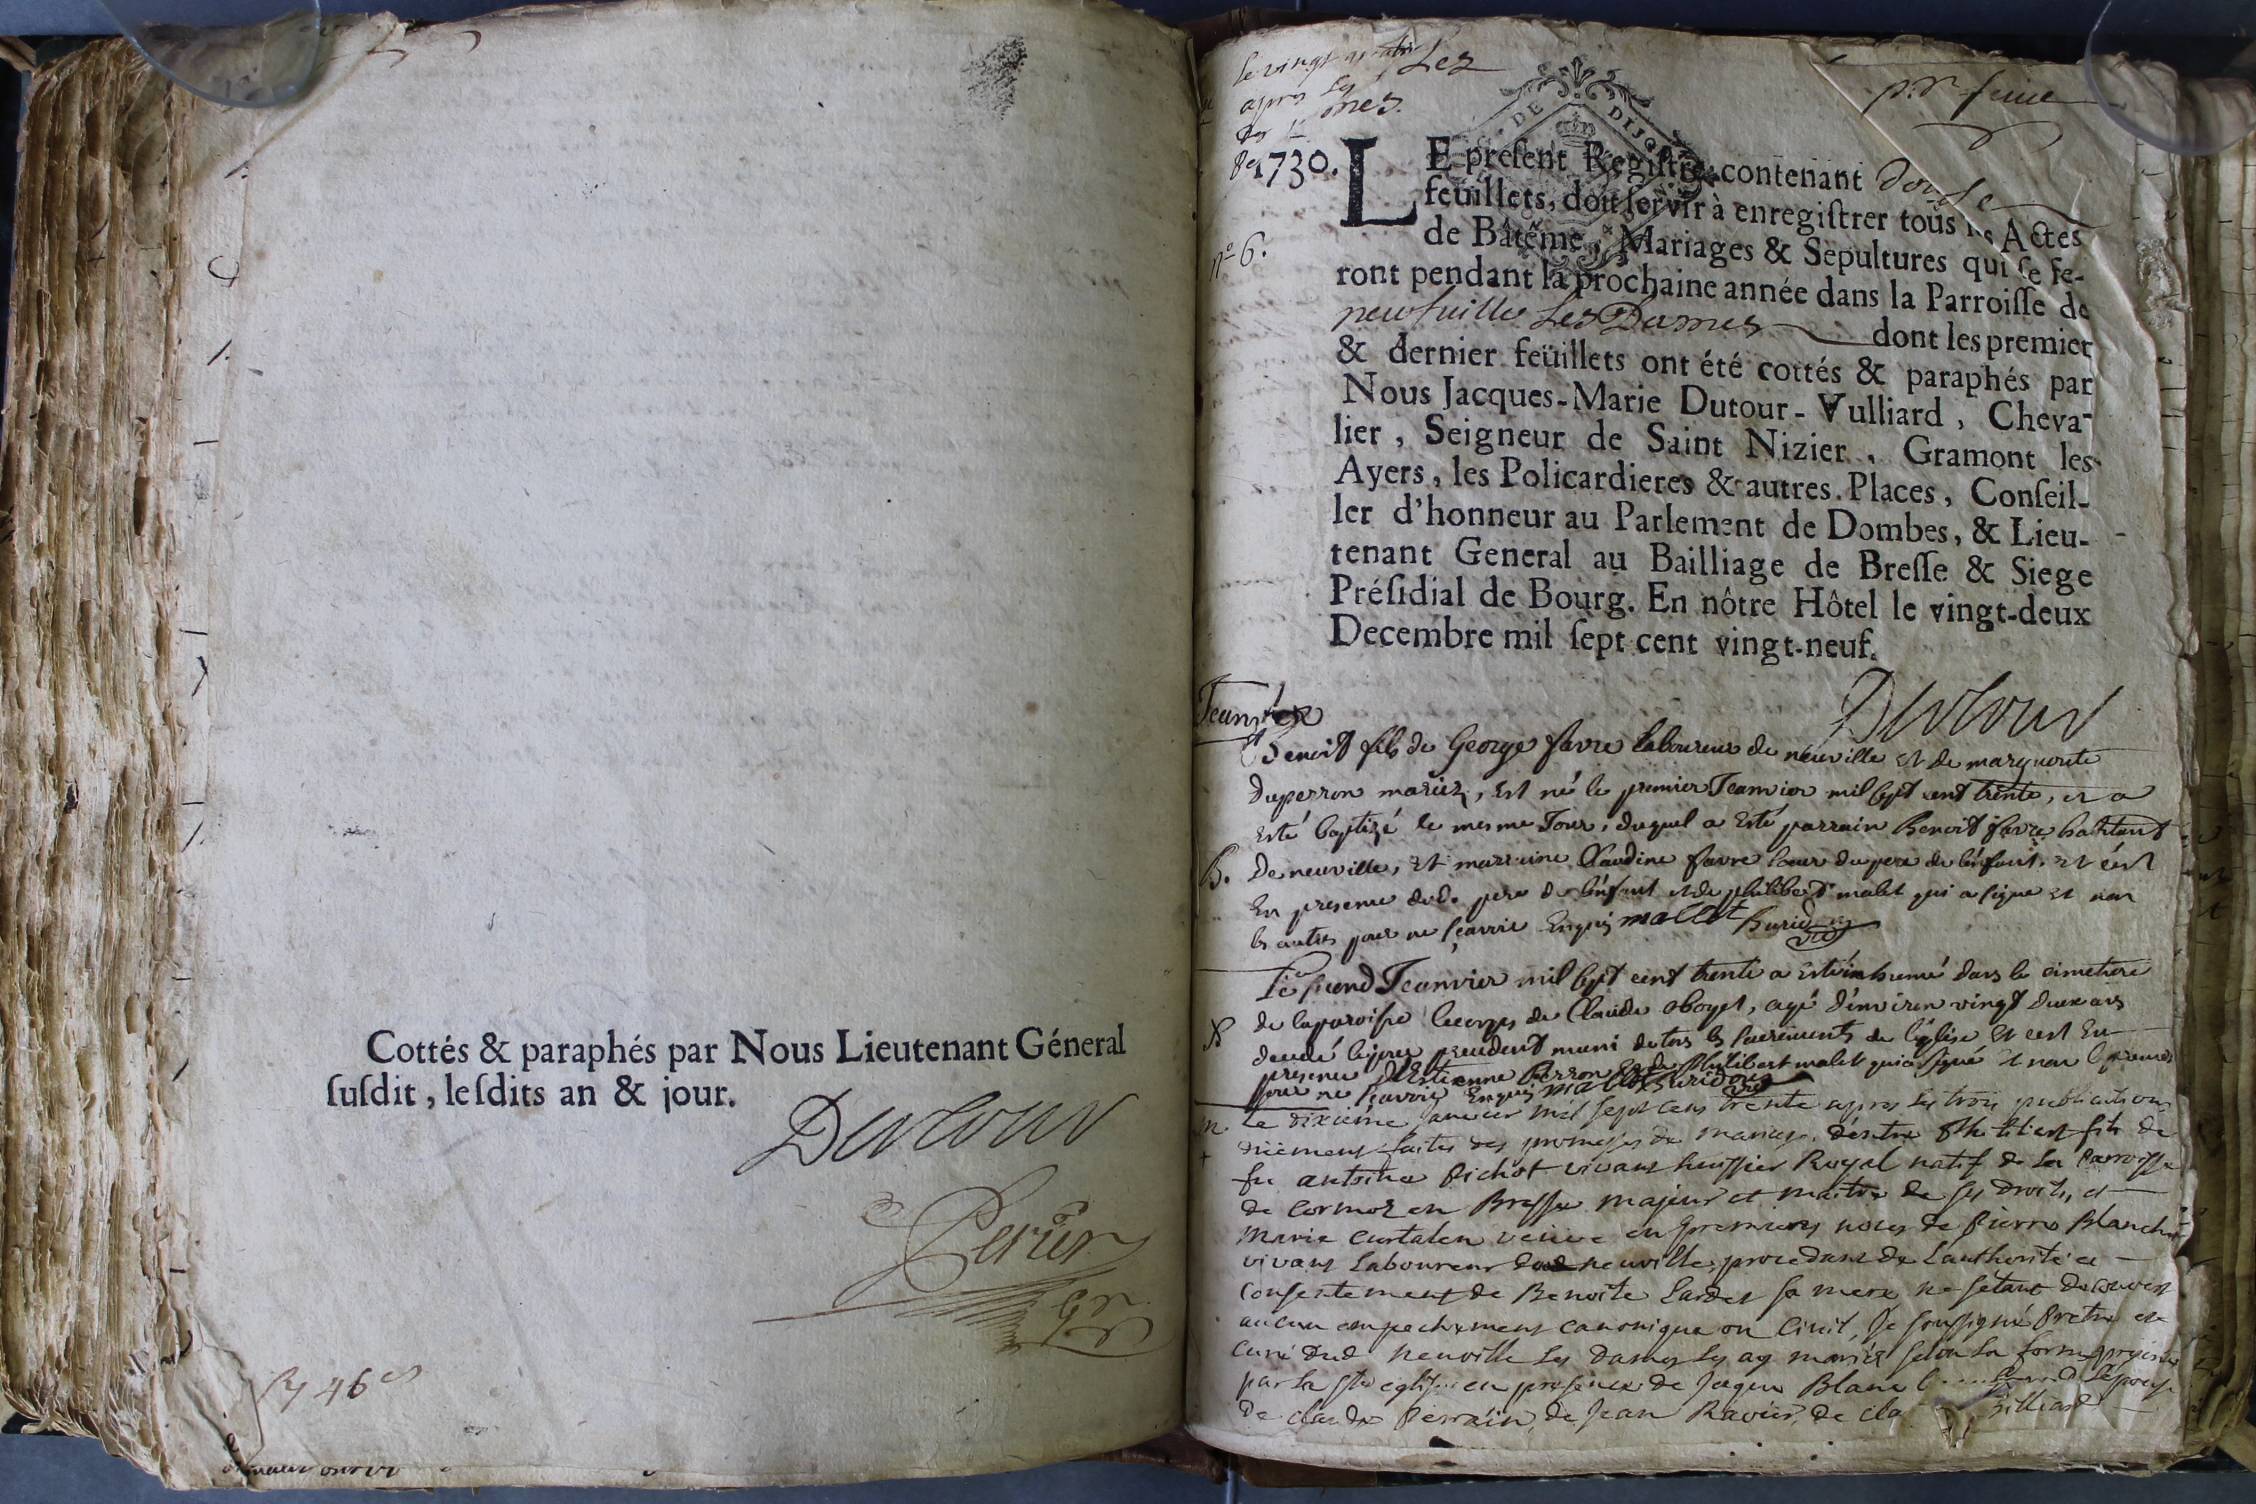 Cottés & paraphés par Nous Lieutenant Géneral
ſuſdit, leſdits an & jour.
Dutour
Perier
46
le vingt
Les
après
mes
1730.
n.º 6.
DE DIJON
LE preſent Regiſtre contenant douſe
feüillets, doit ſervir à enregiſtrer tous les Actes
de Bâtême, Mariages & Sepultures qui ſe fe-
ront pendant la prochaine année dans la Parroiſſe de
neufuille Les Dames dont les premier
& dernier feüillets ont été cottés & paraphés par
Nous Jacques-Marie Dutour-Vulliard, Cheva-
lier, Seigneur de Saint Nizier, Gramont les
Ayers, les Policardieres & autres Places, Conſeil-
ler d'honneur au Parlement de Dombes, & Lieu-
tenant General au Bailliage de Breſſe & Siege
Préſidial de Bourg. En nôtre Hôtel le vingt-deux
Decembre mil ſept cent vingt-neuf.
Dutour
Benoit fils de George favre laboureur de neuville et de marguerite
Duperron mariez, est né le premier Jeanvier mil sept cent trente, et a
esté baptizé le mesme Jour, duquel a esté parrain Benoit favre habitant
B. De neuville, et marraine Claudine favre soeur du pere de l'enfant, et c'est
En presence dud. pere de l'enfant et de philibert malet qui a signé et non
les autres pour ne sçavoir Enquis mallet
Le second Jeanvier mil sept cent trente a esté inhumé dans le cimetiere
de la paroisse le corps de Claude agé d'environ vingt deux ans
decedé le jour precedent muni de tous les sacrements de l'église et c'est En
presence d'Estienne Perron et de Philibert malet qui a signé et non le premier
pour ne sçavoir Enquis mallet
Le dixième janvier mil sept cens trente apres les trois publications
duëment faites des promesses de mariage d'entre Philibert fils de
fu antoine Pichot vivant huissier Royal natif de la Parroisse
de Cormoz en Bresse majeur et maitre de ses droits, et
Marie Curtalen veuve en premieres noces de Pierre Blanch
vivant Laboureur dud neuville, procedant de l'authorité et
Consentement de Benoite Lardet sa mere ne s'etant decouvert
aucun empechement canonique ou Civil, Je soussigné Pretre et
curé dud neuville les Dames les ay mariés selon la forme prescrite
par la Ste eglise en presence de Jaque Blanc
De claude Perrain, de Jean Ravier, de cla Billiard